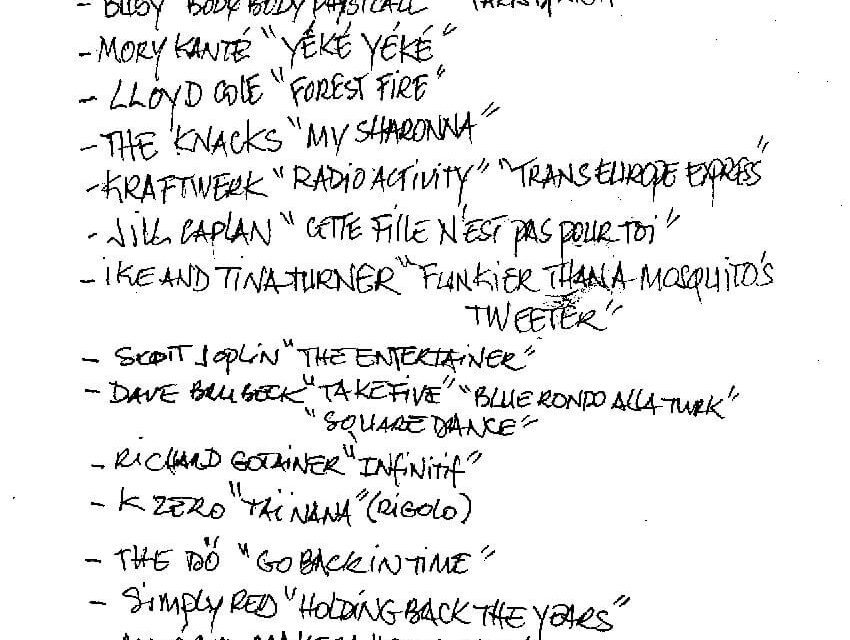 - BUSY "BODY BODY PHYSICAL"
- MORY KANTÉ "YÉKÉ YÉKÉ"
- LLOYD COLE "FOREST FIRE"
- THE KNACKS "MY SHARONNA"
- KRAFTWERK "RADIO ACTIVITY" "TRANS EUROPE EXPRESS"
- JILL CAPLAN "CETTE FILLE N'EST PAS POUR TOI"
- IKE AND TINA TURNER "FUNKIER THAN A MOSQUITO'S
TWEETER"
- SCOTT JOPLIN "THE ENTERTAINER"
- DAVE BRUBECK "TAKE FIVE" "BLUE RONDO ALLA TURK"
"SQUARE DANCE"
- RICHARD GOTAINER "INFINITIF"
- K ZERO "TAÏ NANA" (RIGOLO)
- THE DÖ "GO BACK IN TIME"
- SIMPLY RED "HOLDING BACK THE YEARS"